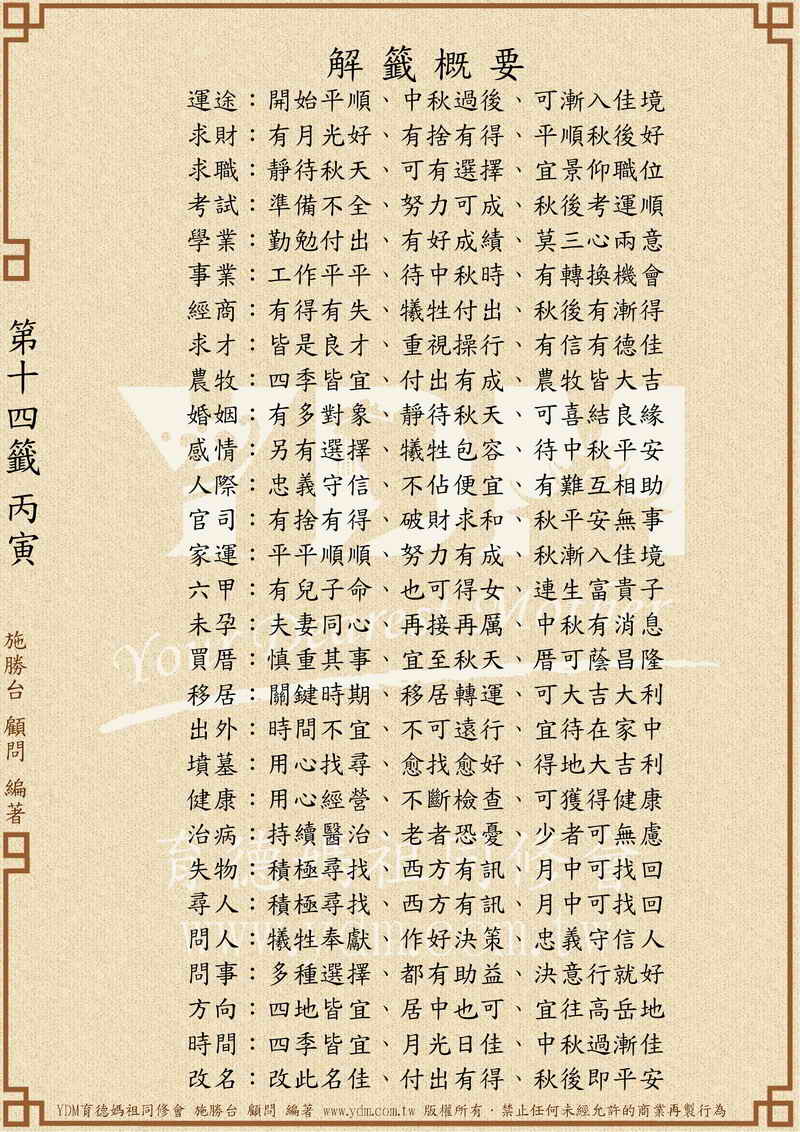 解籤概要
運途：開始平順、中秋過後、可漸入佳境
求財：有月光好、有捨有得、平順秋後好
求職：靜待秋天、可有選擇、宜景仰職位
考試：準備不全、努力可成、秋後考運順
學業：勤勉付出、有好成績、莫三心兩意
事業：工作平平、待中秋時、有轉換機會
經商：有得有失、犧牲付出、秋後有漸得
求才：皆是良才、重視操行、有信有德佳
農牧：四季皆宜、付出有成、農牧皆大吉
婚姻：有多對象、靜待秋天、可喜結良緣
感情：另有選擇、犧牲包容、待中秋平安
人際：忠義守信、不佔便宜、有難互相助
官司：有捨有得、破財求和、秋平安無事
家運：平平順順、努力有成、秋漸入佳境
六甲：有兒子命、也可得女、連生富貴子
未孕：夫妻同心、再接再厲、中秋有消息
買厝：慎重其事、宜至秋天、厝可蔭昌隆
移居：關鍵時期、移居轉運、可大吉大利
出外：時間不宜、不可遠行、宜待在家中
墳墓：用心找尋、愈找愈好、得地大吉利
健康：用心經營、不斷檢查、可獲得健康
治病：持續醫治、老者恐憂、少者可無慮
失物：積極尋找、西方有訊、月中可找回
尋人：積極尋找、西方有訊、月中可找回
問人：犧牲奉獻、作好決策、忠義守信人
問事：多種選擇、都有助益、決意行就好
方向：四地皆宜、居中也可、宜往高岳地
時間：四季皆宜、月光日佳、中秋過漸佳
改名：改此名佳、付出有得、秋後即平安
第十四籤 丙寅
施勝台 顧問 編著
YDM
Your Dearest Mother
育德媽祖同修會
www.ydm.com.tw
YDM育德媽祖同修會 施勝台 顧問 編著 www.ydm.com.tw 版權所有．禁止任何未經允許的商業再製行為